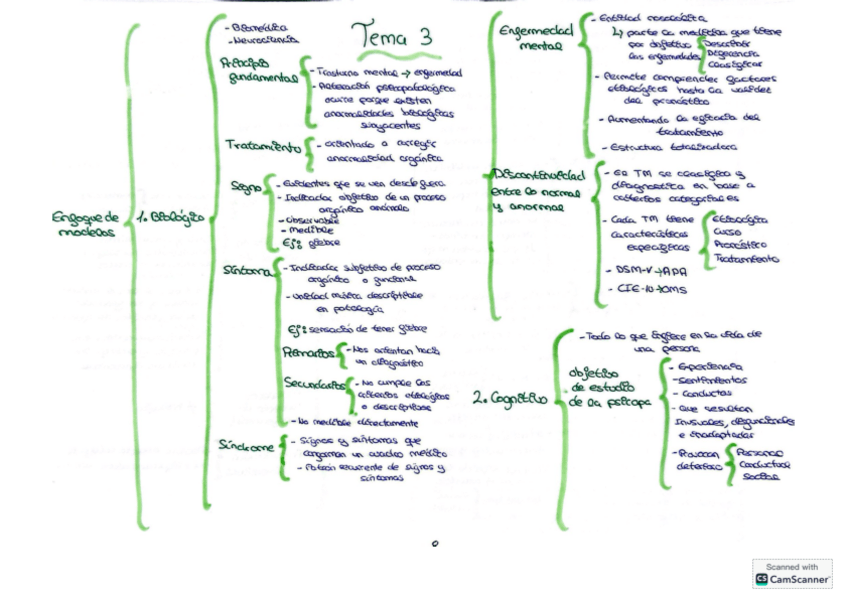 Tema 3
Enfoque de
modelos
1. Biológico
- Biomédico
- Neurociencia
Principio
fundamental
- Trastorno mental → enfermedad
- Alteración psicopatológica
ocurre porque existen
anormalidades biológicas
subyacentes
Tratamiento
- orientado a corregir
anormalidad orgánica
Signo
- Evidentes que se ven desde fuera
- Indicador objetivo de un proceso
orgánico anómalo
- observable
- medible
Ej: fiebre
Síntoma
- Indicador subjetivo de proceso
orgánico o funcional
- unidad mínima descriptible
en patología
Ej: sensación de tener fiebre
Primarios
- Nos orientan hacia
un diagnóstico
Secundarios
- No cumple los
criterios etiológicos
o descriptivos
- No medible directamente
Síndrome
- Signos y síntomas que
conforman un cuadro médico
- Patrón recurrente de signos y
síntomas
Enfermedad
mental
- Entidad nosológica
↳ parte de la medicina que tiene
por objetivo
las enfermedades
Describir
Diferenciar
Clasificar
- Permite comprender factores
etiológicos hasta la validez
del pronóstico
- Aumentando la eficacia del
tratamiento
- Estructura totalizadora
Discontinuidad
entre lo normal
y anormal
- El TM se clasifica y
diagnostica en base a
criterios categoriales
- Cada TM tiene
características
específicas
Etiología
Curso
Pronóstico
Tratamiento
- DSM-V → APA
- CIE-10 → OMS
2. Cognitivo
- Todo lo que influye en la vida de
una persona
objetivo
de estudio
de la psicopa
- Experiencia
- sentimientos
- conductas
- Que resultan
inusuales, disfuncionales
e inadaptadas
- Provocan
deterioro
Personal
Conductual
Social
Scanned with
CS CamScanner